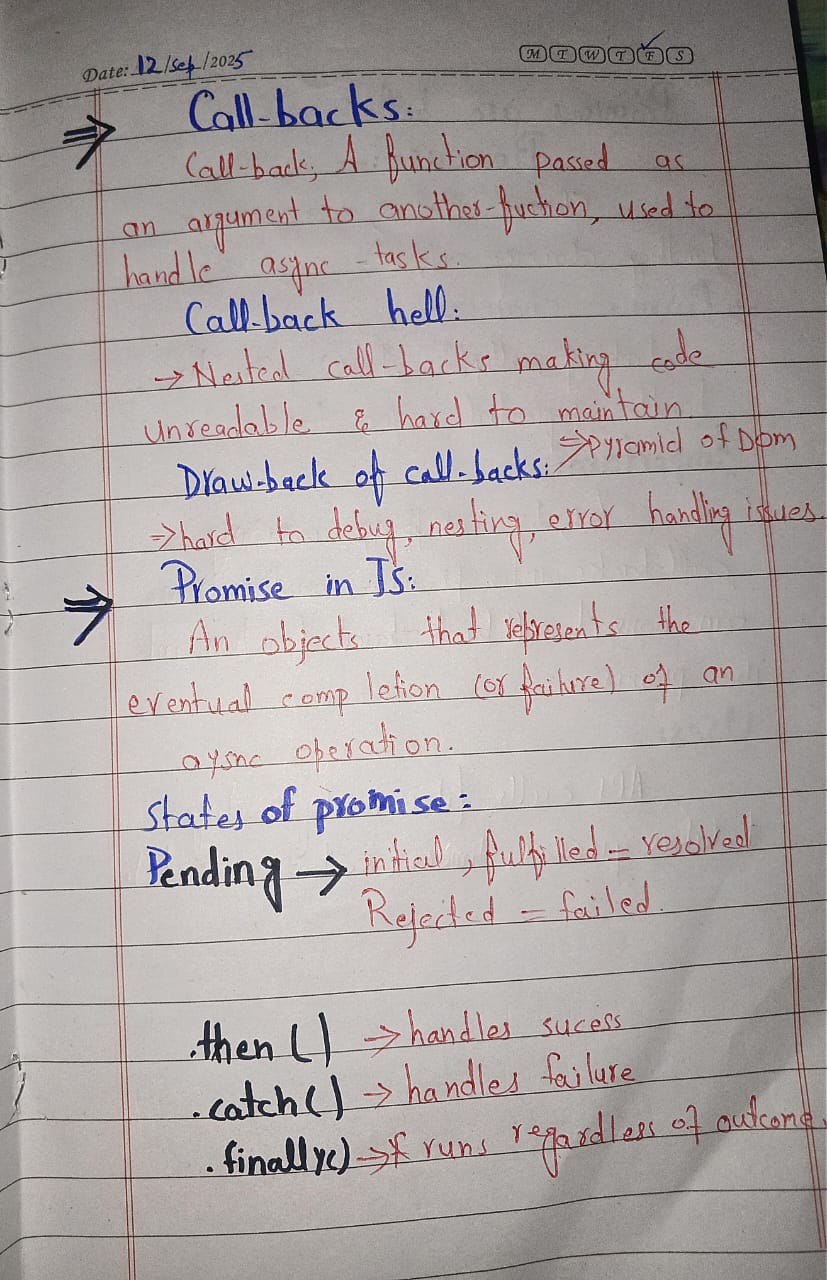 Date: 12/Sep/2025 M T W T F S
⇒ Call-backs:
Call-back; A function passed as
an argument to another-fuction, used to
handle async -tasks.
Call-back hell:
→ Nested call-backs making code
unreadable & hard to maintain.
⇒Pyramid of Doom
Draw-back of call-backs:
⇒hard to debug, nesting, error handling issues
⇒ Promise in JS:
An objects that represents the
eventual completion (or failure) of an
aysnc operation.
States of promise:
Pending → initial, fulfilled = resolved
Rejected = failed.
.then() → handles sucess
.catch() → handles failure
.finally() → runs regardless of outcome